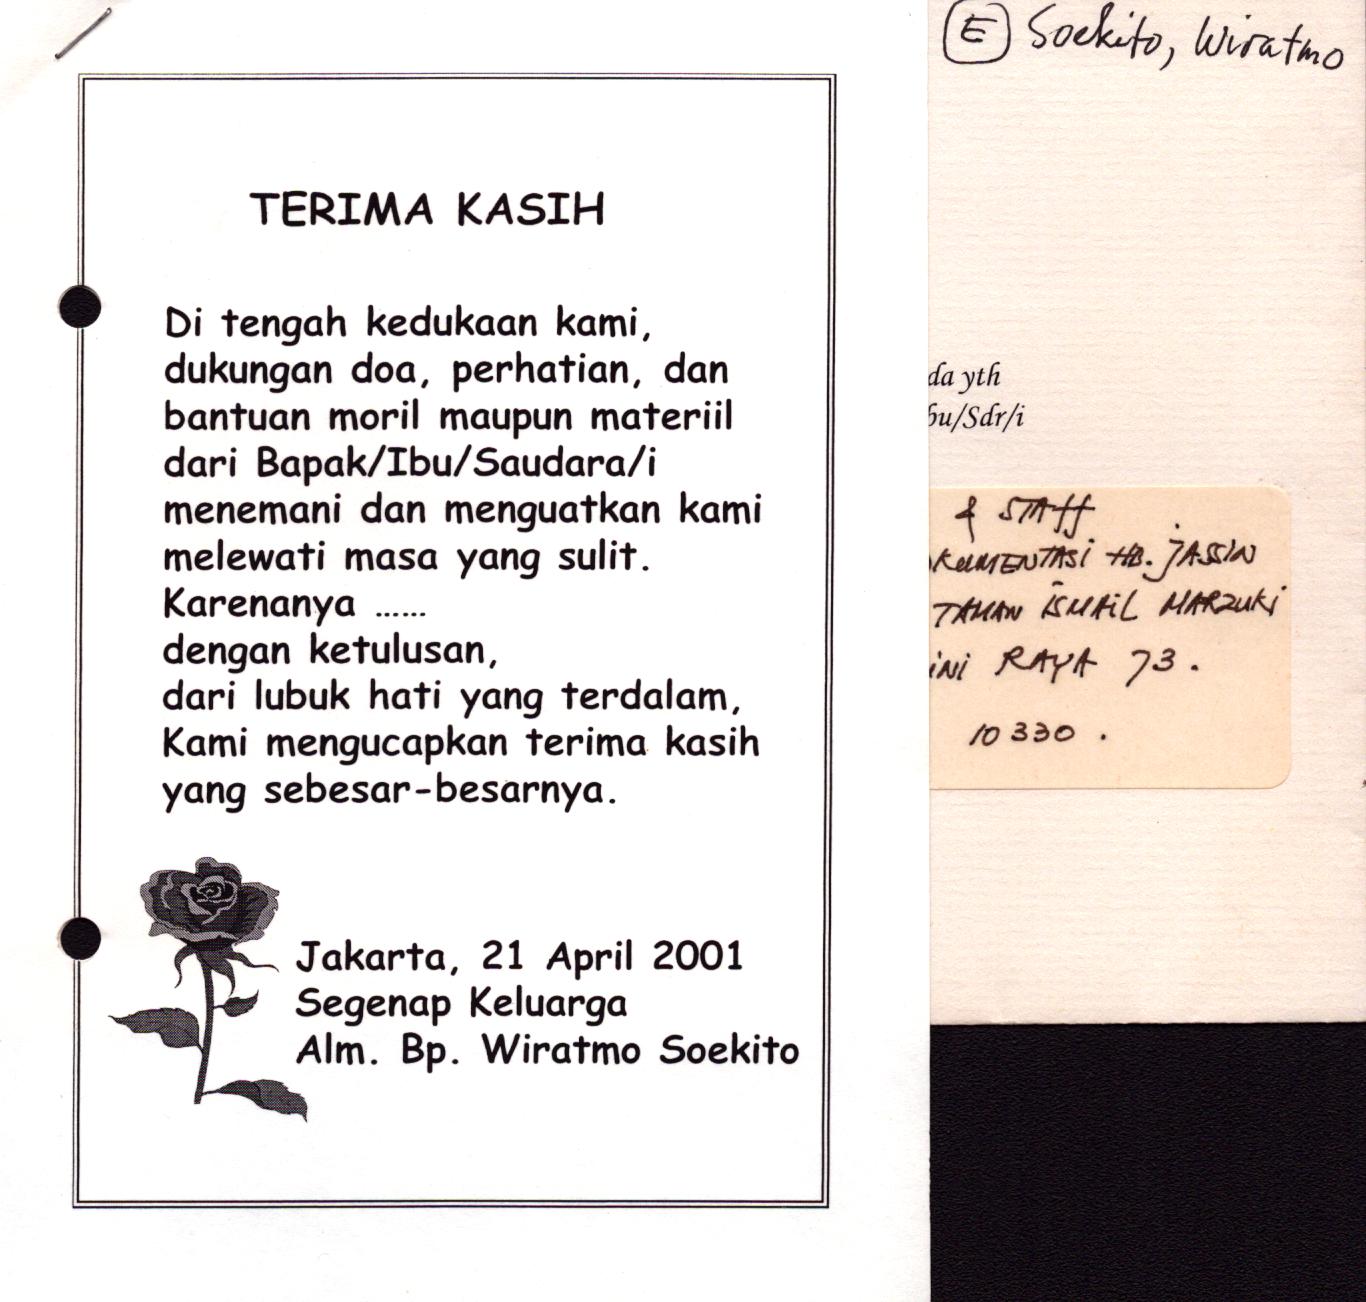 TERIMA KASIH
Di tengah kedukaan kami,
dukungan doa, perhatian, dan
bantuan moril maupun materiil
dari Bapak/Ibu/Saudara/i
menemani dan menguatkan kami
melewati masa yang sulit.
Karenanya ......
dengan ketulusan,
dari lubuk hati yang terdalam,
Kami mengucapkan terima kasih
yang sebesar-besarnya.
Jakarta, 21 April 2001
Segenap Keluarga
Alm. Bp. Wiratmo Soekito
E Soekito, Wiratmo
da yth
bu/Sdr/i
& STAFF
KUMENTASI HB. JASSIN
TAMAN ISMAIL MARZUKI
INI RAYA 73.
10330.